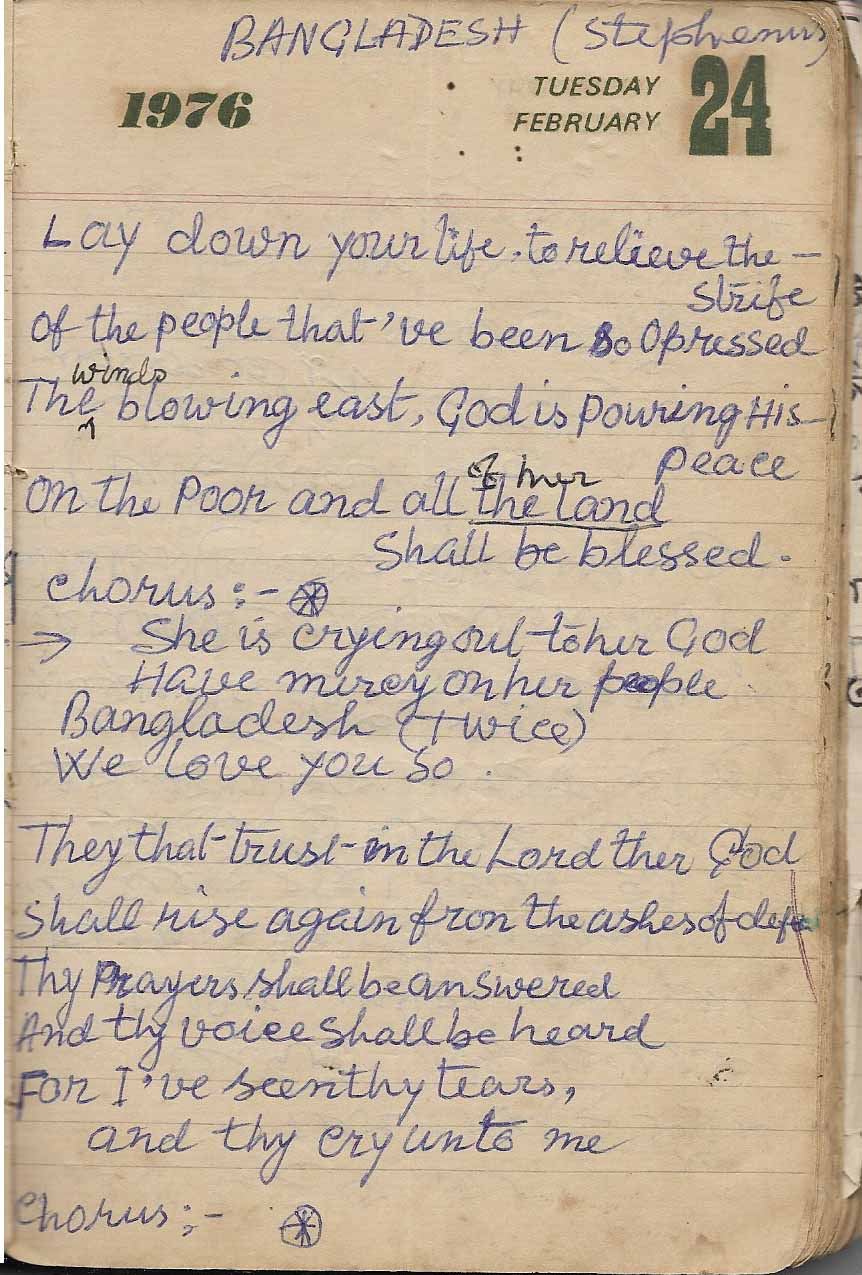 BANGLADESH (Stephenus)
1976
TUESDAY
FEBRUARY
24
Lay down your life, to relieve the -
Strife
Of the people that've been so Opressed
winds
The blowing east, God is pouring His-
peace
of her
On the Poor and all the land
Shall be blessed.
Chorus :-
→ She is crying out to her God
Have mircy on her people
Bangladesh (Twice)
We love you so.
They that trust in the Lord ther God
Shall rise again fron the ashes of
Thy Prayers shall be answered
And thy voice shall be heard
For I've seen thy tears,
and thy cry unto me
Chorus :-